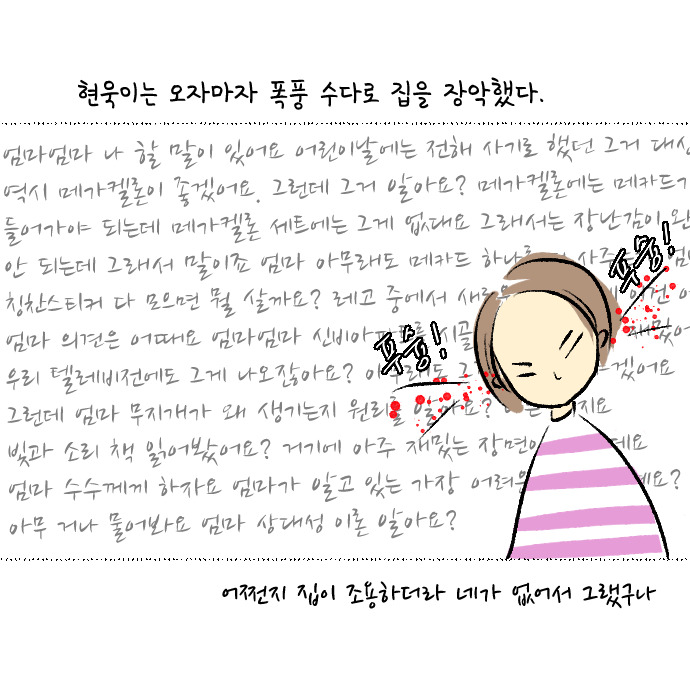 현욱이는 오자마자 폭풍 수다로 집을 장악했다.
엄마엄마 나 할 말이 있어요 어린이날에는 전해 사기로 했던 그거 대신
역시 메가켈론이 좋겠어요. 그런데 그거 알아요? 메가켈론에는 메카드가
들어가야 되는데 메가켈론 세트에는 그게 없대요 그래서는 장난감이 완
안 되는데 그래서 말이죠 엄마 아무래도 메카드 하나를 사주
푸슝!
칭찬스티커 다 모으면 뭘 살까요? 레고 중에서
엄마 의견은 어때요 엄마엄마 신비아파트
푸슝!
우리 텔레비전에도 그게 나오잖아요? 겠어요
그런데 엄마 무지개가 왜 생기는지 원리를 알아요? 지요
빛과 소리 책 읽어봤어요? 거기에 아주 재밌는 장면이 데요
엄마 수수께끼 하자요 엄마가 알고 있는 가장 어려운 요?
아무 거나 물어봐요 엄마 상대성 이론 알아요?
어쩐지 집이 조용하더라 네가 없어서 그랬구나